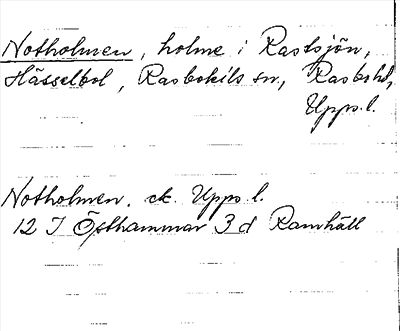 Notholmen, holme i Rastsjön,
Hässelbol, Rasbokils sn, Rasbo hd,
Upps. l.
Notholmen. ek. Upps. l.
12 I Östhammar 3 d Ramhäll